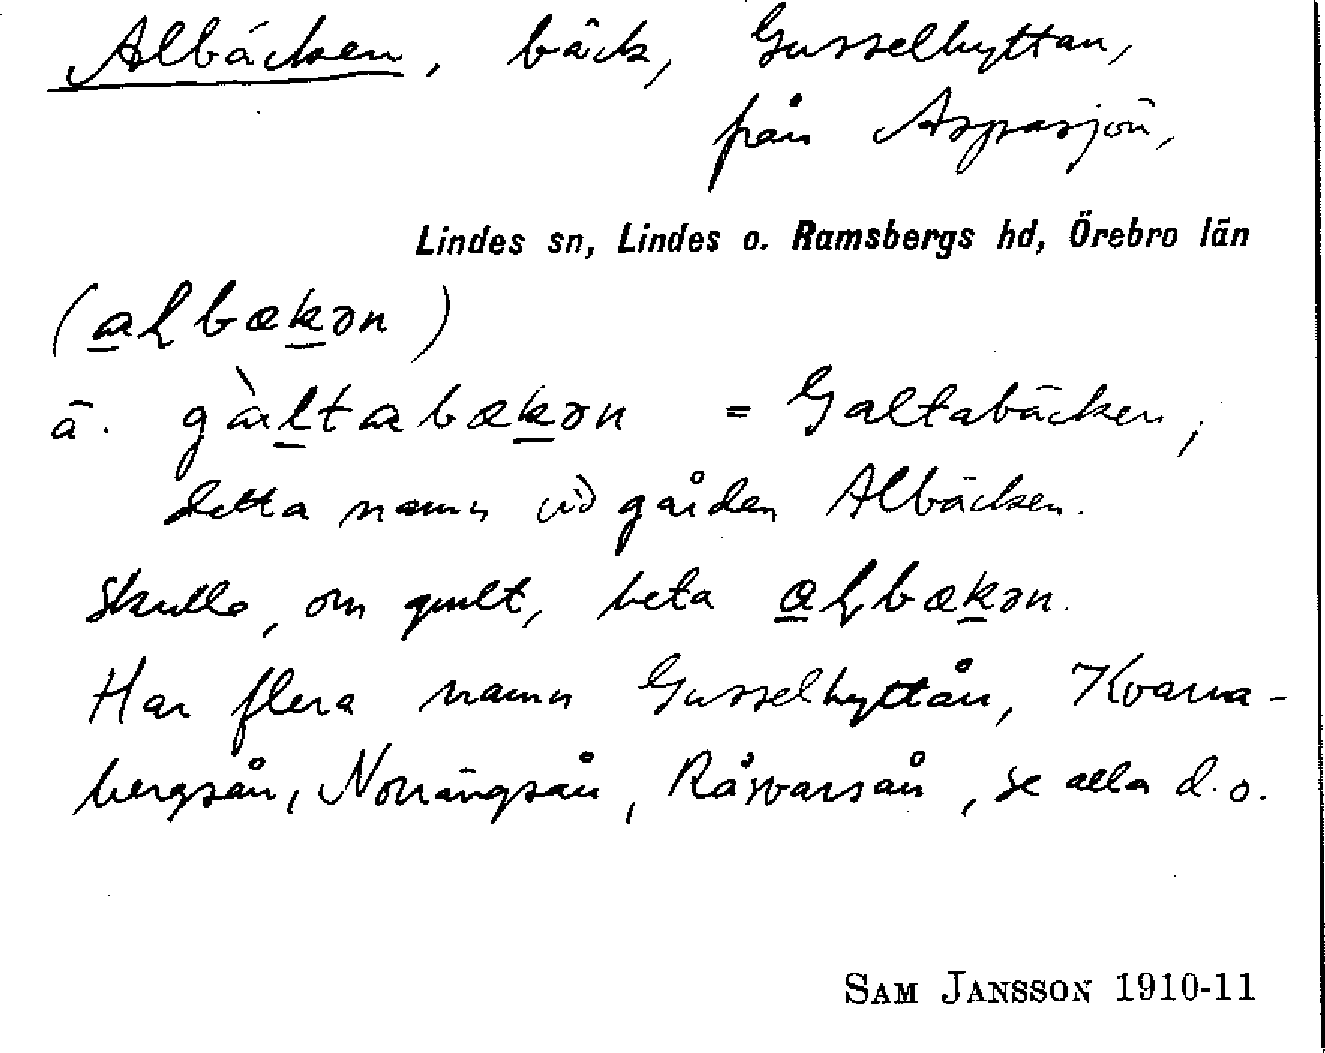 Albäcken, bäck, Gusselhyttan,
från Aspasjön,
Lindes sn, Lindes o. Ramsbergs hd, Örebro län
(aɽbækən)
ä. gàltabækən = Galtabäcken,
detta namn vid gården Albäcken.
Skulle, om gmlt, heta aɽbækən.
Har flera namn Gusselhyttån, Kvarna-
bergsån, Norrängsån, Råsvarsån, se alla d.o.
SAM JANSSON 1910-11